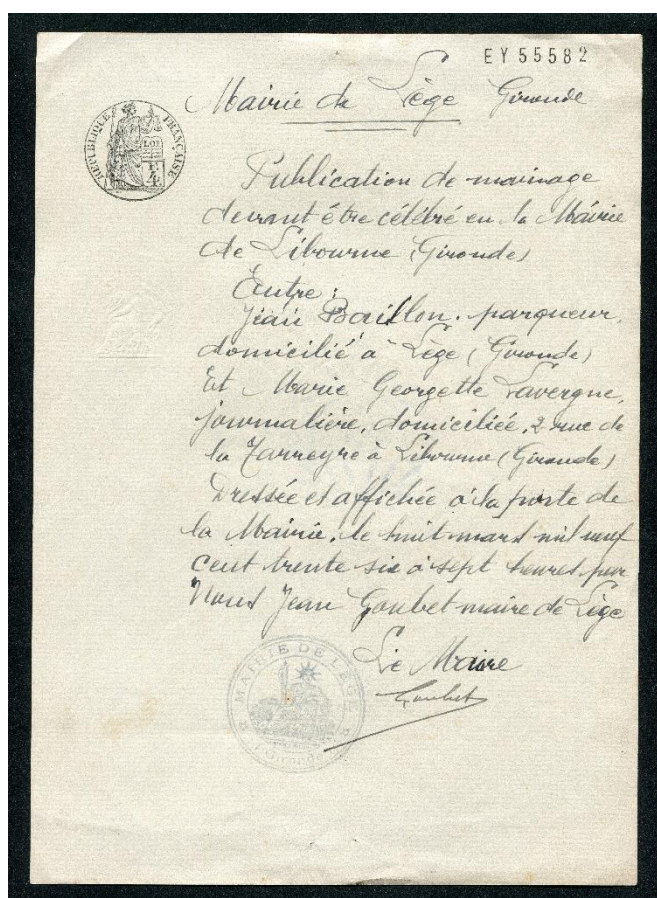 EY 55582
Mairie de Lège Gironde
RÉPUBLIQUE FRANÇAISE
LOI
4
Publication de mariage
devant être célébré en la Mairie
de Libourne (Gironde)
Entre:
Jean Baillon, parqueur,
domicilié à Lège (Gironde)
Et Marie Georgette Lavergne,
journalière, domiciliée, 2 rue de
la Zarreyre à Libourne (Gironde)
Dressée et affichée à la porte de
la Mairie, le huit mars mil neuf
cent trente six à sept heures par
Nous Jean Goubet maire de Lège
Le Maire
Goubet
MAIRIE DE LÈGE
(Gironde)